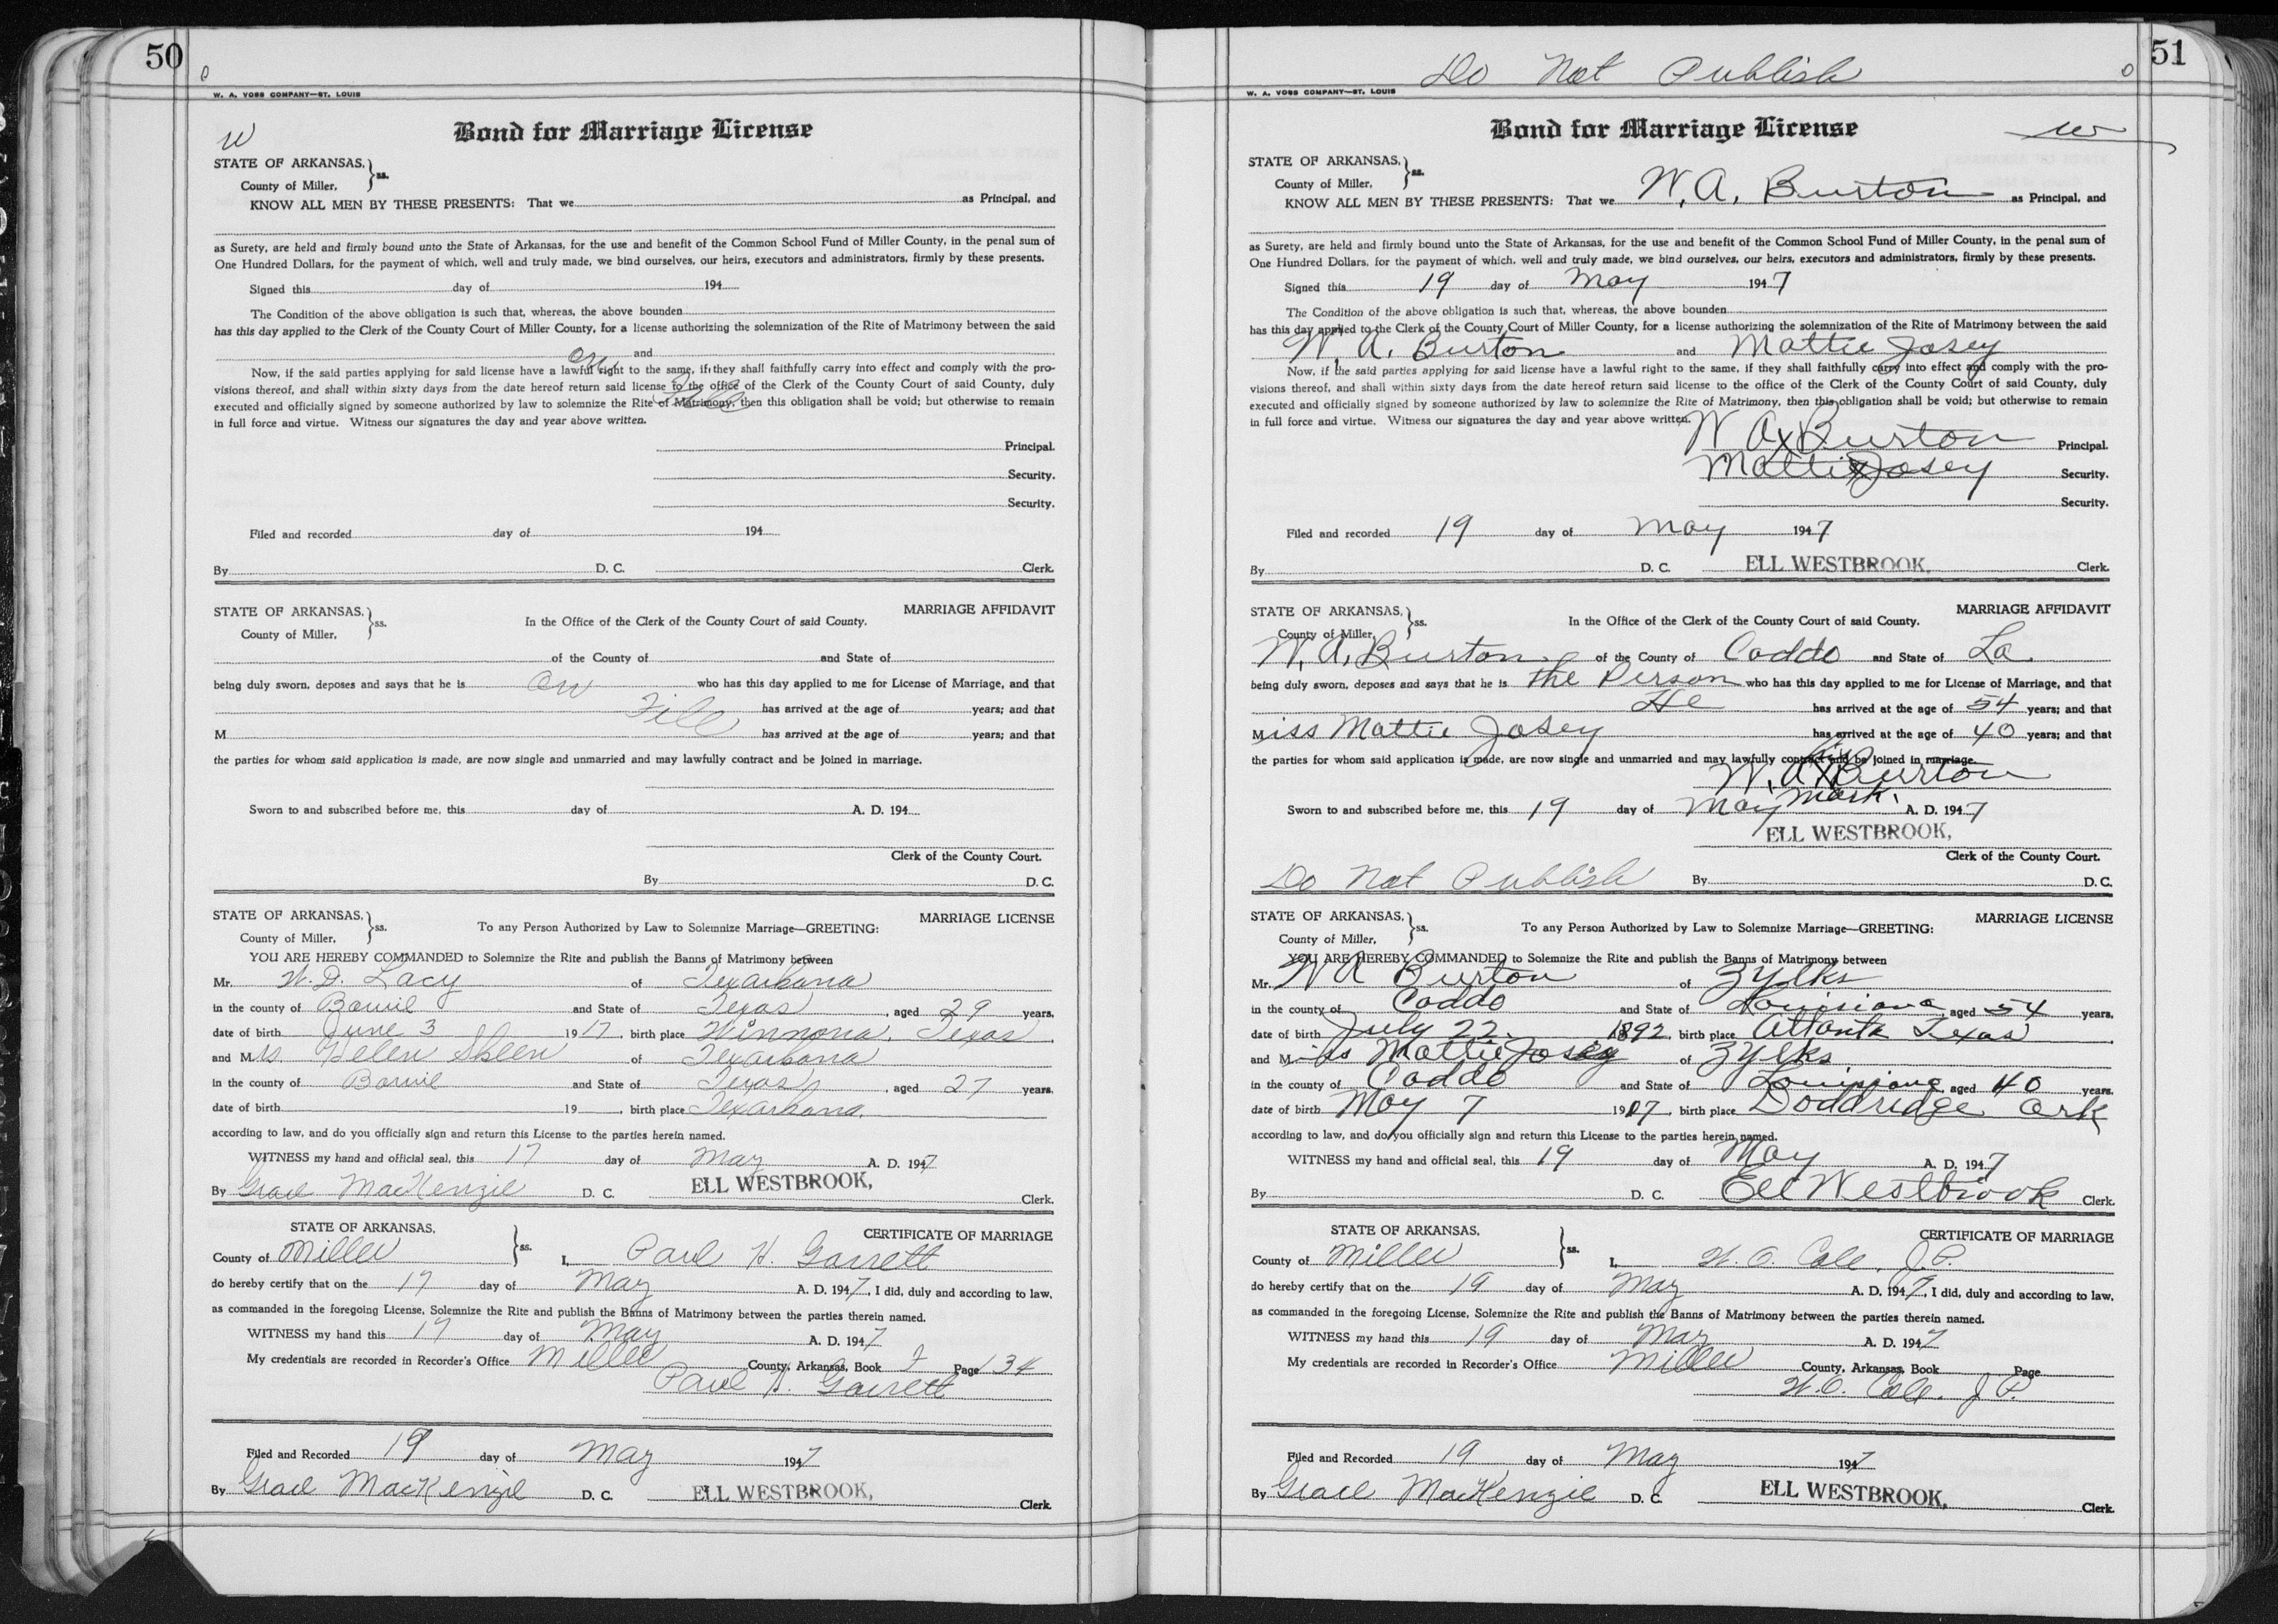 50
W. A. VOSS COMPANY—ST. LOUIS
W
Bond for Marriage License
STATE OF ARKANSAS, } ss.
County of Miller,
KNOW ALL MEN BY THESE PRESENTS: That we as Principal, and
as Surety, are held and firmly bound unto the State of Arkansas, for the use and benefit of the Common School Fund of Miller County, in the penal sum of
One Hundred Dollars, for the payment of which, well and truly made, we bind ourselves, our heirs, executors and administrators, firmly by these presents.
Signed this day of 194
The Condition of the above obligation is such that, whereas, the above bounden
has this day applied to the Clerk of the County Court of Miller County, for a license authorizing the solemnization of the Rite of Matrimony between the said
On and
Now, if the said parties applying for said license have a lawful right to the same, if they shall faithfully carry into effect and comply with the pro-
visions thereof, and shall within sixty days from the date hereof return said license to the office of the Clerk of the County Court of said County, duly
File
executed and officially signed by someone authorized by law to solemnize the Rite of Matrimony, then this obligation shall be void; but otherwise to remain
in full force and virtue. Witness our signatures the day and year above written.
Principal.
Security.
Security.
Filed and recorded day of 194
By D. C. Clerk.
STATE OF ARKANSAS, } ss. MARRIAGE AFFIDAVIT
County of Miller, In the Office of the Clerk of the County Court of said County.
of the County of and State of
being duly sworn, deposes and says that he is On who has this day applied to me for License of Marriage, and that
File has arrived at the age of years; and that
M has arrived at the age of years; and that
the parties for whom said application is made, are now single and unmarried and may lawfully contract and be joined in marriage.
Sworn to and subscribed before me, this day of A. D. 194
Clerk of the County Court.
By D. C.
STATE OF ARKANSAS, } ss. MARRIAGE LICENSE
County of Miller, To any Person Authorized by Law to Solemnize Marriage—GREETING:
YOU ARE HEREBY COMMANDED to Solemnize the Rite and publish the Banns of Matrimony between
Mr. W. D. Lacy of Texarkana
in the county of Bowie and State of Texas, aged 29 years,
date of birth June 3 1917, birth place Winnona, Texas,
and Mrs. Helen Skeen of Texarkana
in the county of Bowie and State of Texas, aged 27 years.
date of birth 19 , birth place Texarkana
according to law, and do you officially sign and return this License to the parties herein named.
WITNESS my hand and official seal, this 17 day of May A. D. 1947
By Grace MacKenzie D. C. ELL WESTBROOK, Clerk.
STATE OF ARKANSAS, } ss. CERTIFICATE OF MARRIAGE
County of Miller I, Paul H. Garrett
do hereby certify that on the 17 day of May A. D. 1947, I did, duly and according to law,
as commanded in the foregoing License, Solemnize the Rite and publish the Banns of Matrimony between the parties therein named.
WITNESS my hand this 17 day of May A. D. 1947
My credentials are recorded in Recorder's Office Miller County, Arkansas, Book Page 134
Paul H. Garrett
Filed and Recorded 19 day of May 1947
By Grace MacKenzie D. C. ELL WESTBROOK, Clerk
51
Do Not Publish
W. A. VOSS COMPANY—ST. LOUIS
Bond for Marriage License
W
STATE OF ARKANSAS, } ss.
County of Miller,
KNOW ALL MEN BY THESE PRESENTS: That we W. A. Burton as Principal, and
as Surety, are held and firmly bound unto the State of Arkansas, for the use and benefit of the Common School Fund of Miller County, in the penal sum of
One Hundred Dollars, for the payment of which, well and truly made, we bind ourselves, our heirs, executors and administrators, firmly by these presents.
Signed this 19 day of May 1947
The Condition of the above obligation is such that, whereas, the above bounden
has this day applied to the Clerk of the County Court of Miller County, for a license authorizing the solemnization of the Rite of Matrimony between the said
W. A. Burton and Mattie Josey
Now, if the said parties applying for said license have a lawful right to the same, if they shall faithfully carry into effect and comply with the pro-
visions thereof, and shall within sixty days from the date hereof return said license to the office of the Clerk of the County Court of said County, duly
executed and officially signed by someone authorized by law to solemnize the Rite of Matrimony, then this obligation shall be void; but otherwise to remain
in full force and virtue. Witness our signatures the day and year above written.
W A x Burton Principal.
Mattie x Josey Security.
Security.
Filed and recorded 19 day of May 1947
By D. C. ELL WESTBROOK, Clerk.
STATE OF ARKANSAS, } ss. MARRIAGE AFFIDAVIT
County of Miller, In the Office of the Clerk of the County Court of said County.
W. A. Burton of the County of Caddo and State of La.
being duly sworn, deposes and says that he is the Person who has this day applied to me for License of Marriage, and that
He has arrived at the age of 54 years; and that
Miss Mattie Josey has arrived at the age of 40 years; and that
the parties for whom said application is made, are now single and unmarried and may lawfully contract and be joined in marriage.
his
W. A. x Burton
mark.
Sworn to and subscribed before me, this 19 day of May A. D. 1947
ELL WESTBROOK,
Clerk of the County Court.
Do Not Publish By D. C.
STATE OF ARKANSAS, } ss. MARRIAGE LICENSE
County of Miller, To any Person Authorized by Law to Solemnize Marriage—GREETING:
YOU ARE HEREBY COMMANDED to Solemnize the Rite and publish the Banns of Matrimony between
Mr. W A Burton of Zylks
in the county of Caddo and State of Louisiana, aged 54 years,
date of birth July 22 1892, birth place Atlanta Texas,
and Miss Mattie Josey of Zylks
in the county of Caddo and State of Louisiana, aged 40 years.
date of birth May 7 1907, birth place Doddridge Ark
according to law, and do you officially sign and return this License to the parties herein named.
WITNESS my hand and official seal, this 19 day of May A. D. 1947
By D. C. Ell Westbrook Clerk.
STATE OF ARKANSAS, } ss. CERTIFICATE OF MARRIAGE
County of Miller I, W. O. Cole, J.P.
do hereby certify that on the 19 day of May A. D. 1947, I did, duly and according to law,
as commanded in the foregoing License, Solemnize the Rite and publish the Banns of Matrimony between the parties therein named.
WITNESS my hand this 19 day of May A. D. 1947
My credentials are recorded in Recorder's Office Miller County, Arkansas, Book Page
W. O. Cole. J P.
Filed and Recorded 19 day of May 1947
By Grace MacKenzie D. C. ELL WESTBROOK, Clerk.